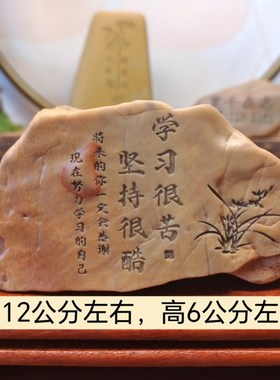 学习很苦
坚持很酷
将来的你一定会感谢
现在努力学习的自己
12公分左右，高6公分左